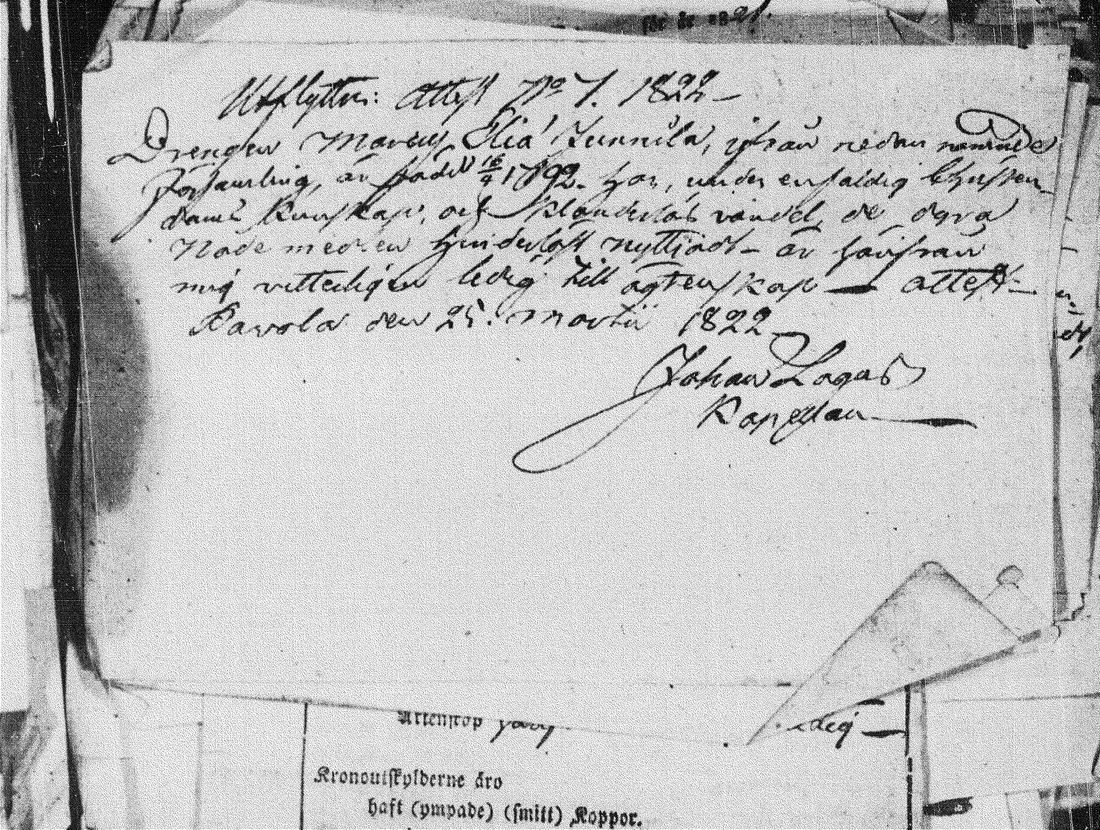 för år 1821.
Utflyttn: Attest No 7. 1822 –
Drengen Elia Junnila, ifrån nedan nämnde
Församling, är född 16/4 1792. har, under enfaldig Christen-
doms Kunskap, och Klanderlös vandel, de dyra
Nåde medlen hinderlöst nyttjadt – är härifrån
mig vetterligen ledig till ägtenskap — attest:
den 25. Martii 1822
Johan Lagus
Kapellan
Äktenskap ledig —
Kronoutskylderne äro
haft (ympade) (smitt) Koppor.